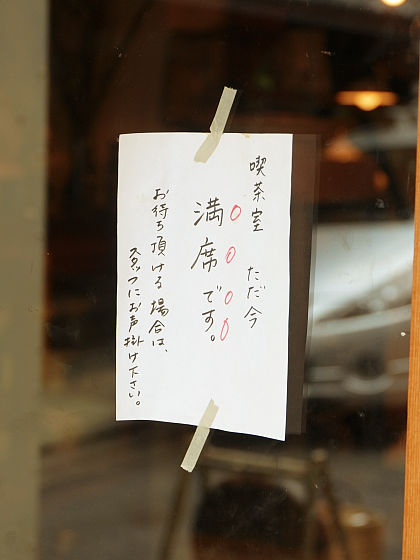 喫茶室 ただ今
満席です。
お待ち頂ける場合は、
スタッフにお声掛け下さい。